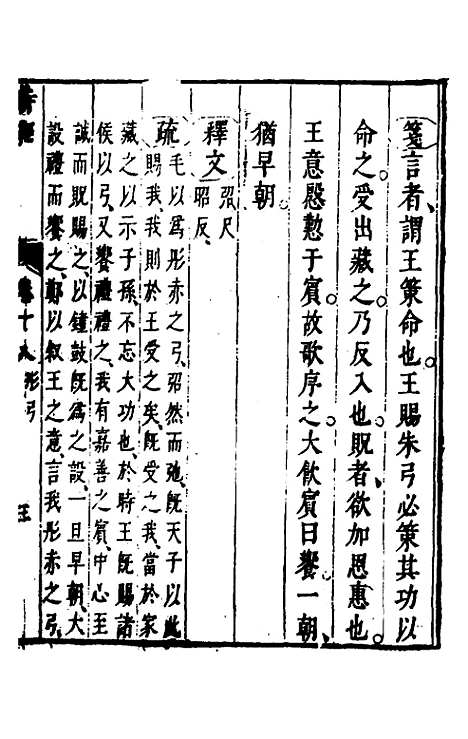 箋言者、謂王策命也。王賜朱弓必策其功以
命之。受出藏之。乃反入也。貺者、欲加恩惠也。
王意慇懃于賓。故歌序之。大飲賓曰饗。一朝、
猶早朝。
釋文 弨尺
昭反、
疏 毛以為彤赤之弓、弨然而弛、旣天子以此
賜我、我則於王受之矣、旣受之、我當於家
藏之、以示子孫、不忘大功也、於時王旣賜諸
侯以弓、又饗禮禮之、我有嘉善之賓、中心至
誠而貺賜之、以鐘鼓旣為之設、一旦早朝、大
設禮而饗之、鄭以叙王之意、言我彤赤之弓、
詩經 卷十 彤弓